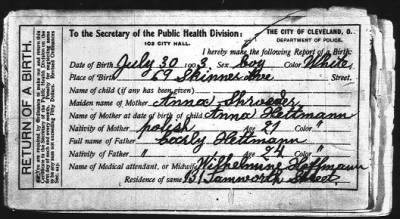 To the Secretary of the Public Health Division:
THE CITY OF CLEVELAND, O.
DEPARTMENT OF POLICE.
103 CITY HALL.
I hereby make the following Report of a Birth:
Date of Birth July 30 1903, Sex, boy Color White
Place of Birth 69 Skinner Ave Street.
Name of child (if any has been given)
Maiden name of Mother Anna Shroeder
Name of Mother at date of birth of child Anna Hettmann
Nativity of Mother polish Age 27 Color "
Full name of Father Carly Hettmann
Nativity of Father " Age 24 Color "
Name of Medical attendant, or Midwife Wilhelmine Hoffmann
Residence of same 131 Tamworth Street.
RETURN OF A BIRTH.